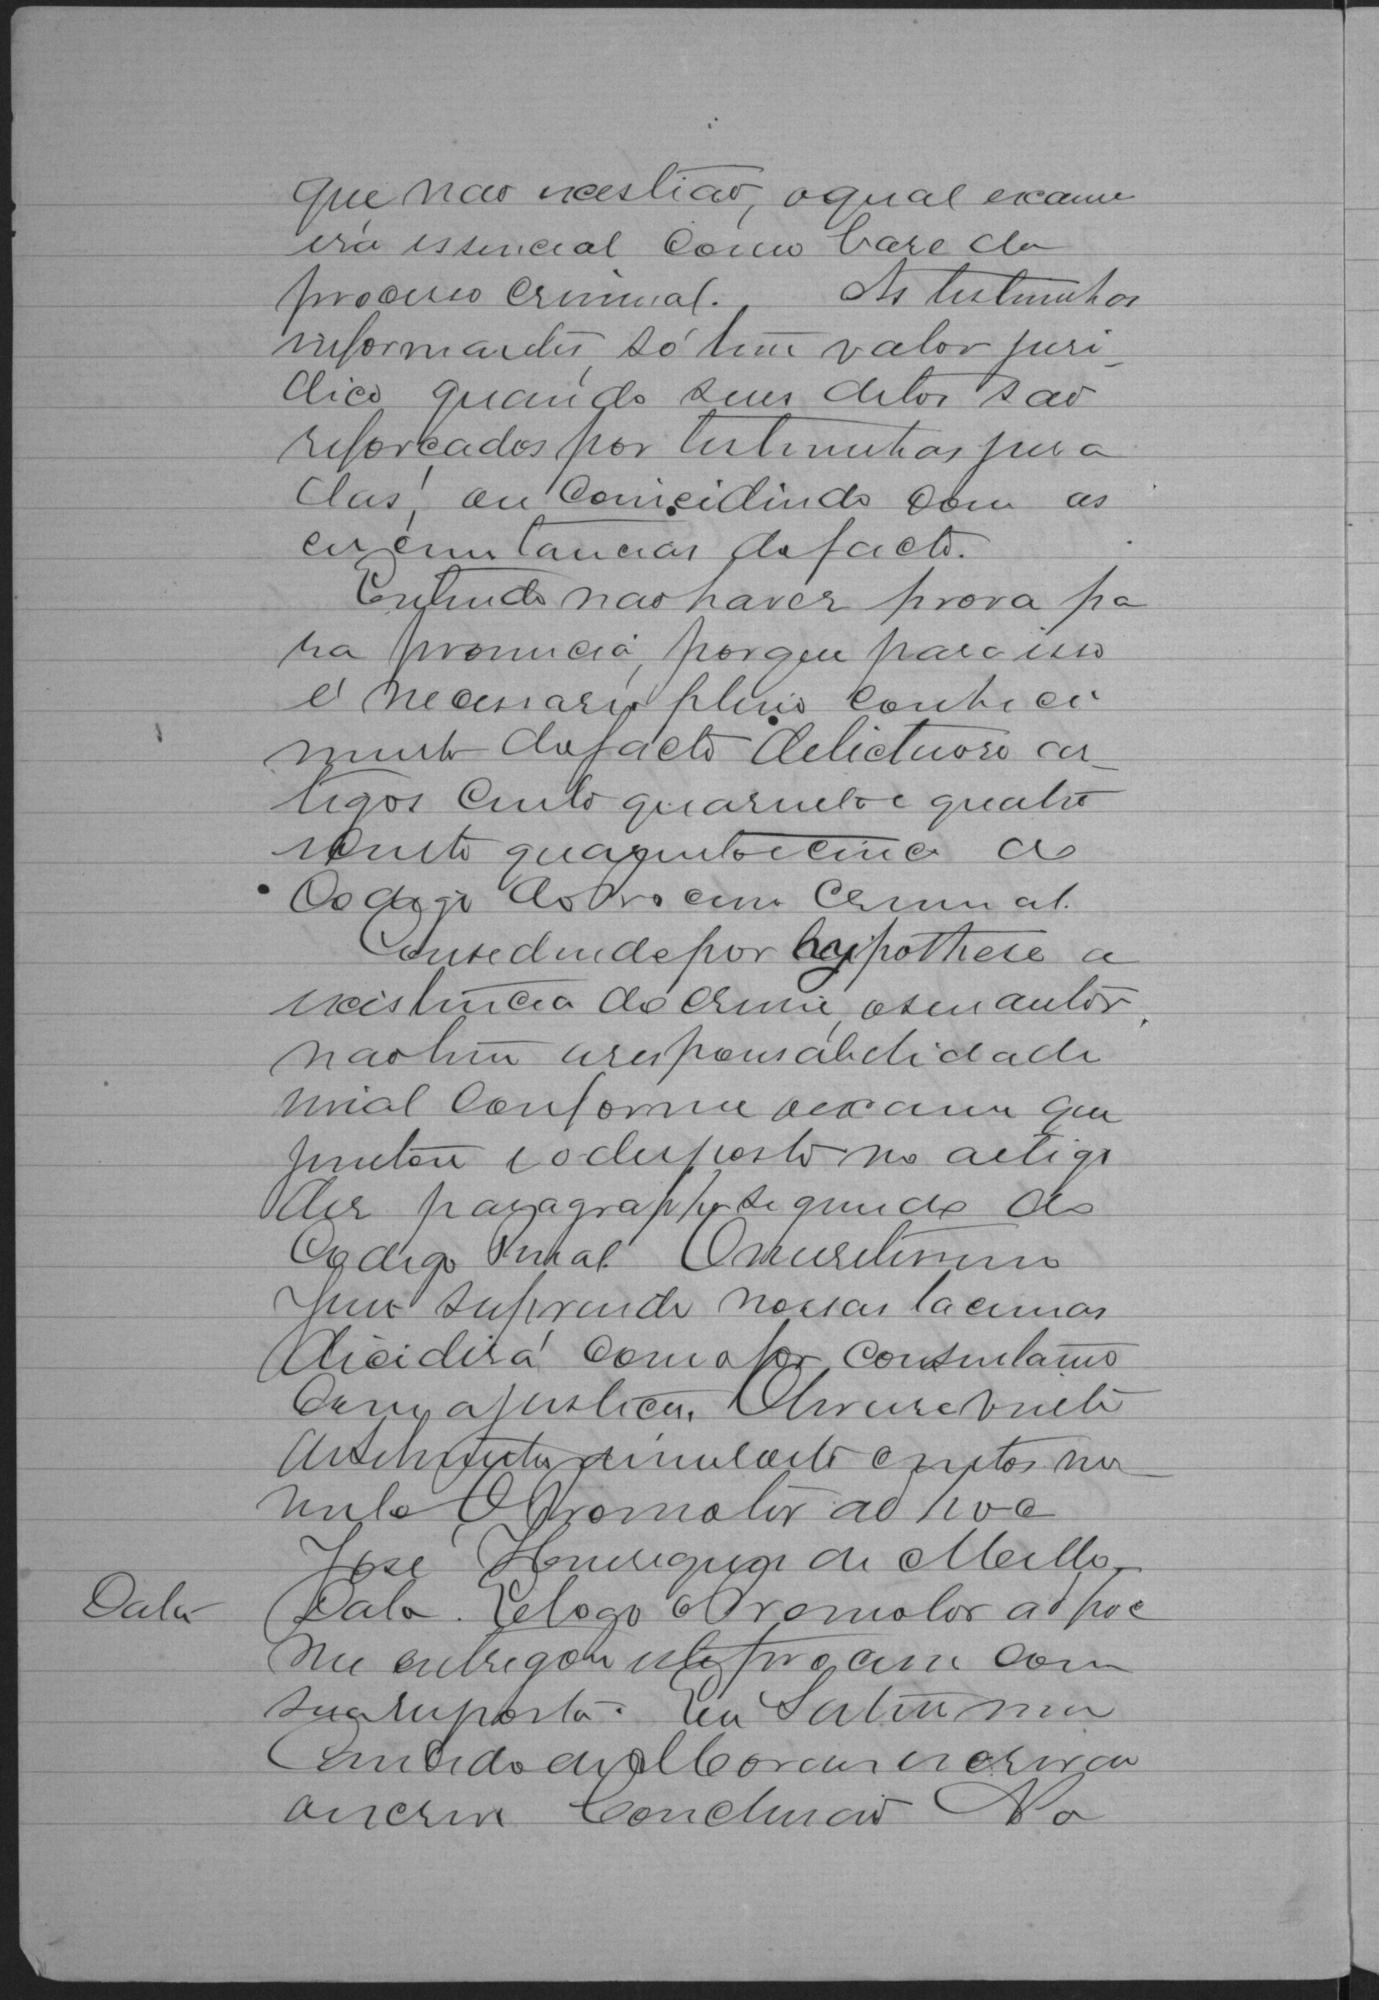 que não existião, o qual exame
era essencial como base da
processo criminal. As testimunhas
informantes, só tem valor juri-
dico quando seus ditos são
reforçados por testimunhas jura
das, ou coincidindo com as
circumstancias do facto.
Entendo não haver prova pa
ra pronuncia, porque para isso
é necessario pleno conheci
mento do facto delictuoso ar-
tigos cento quarenta e quatro
e cento quarenta e cinco do
Codigo do Processo Criminal.
Concedendo por hypothese a
existencia do crime, o seu autor
não tem a responsabilidade
penal conforme o exame que
juntou e o disposto no artigo
dez paragrapho segundo do
Codigo Penal. O meretissimo
Juiz suprindo nossas lacunas
dicidirá como for consentanio
com a justiça.
O Promotor ad hoc
José Henriques de Mello.
Data Data. E logo o Promotor ad hoc
me entregou este processo com
sua resposta. Eu
escrivão
o escrevi Conclusão Na